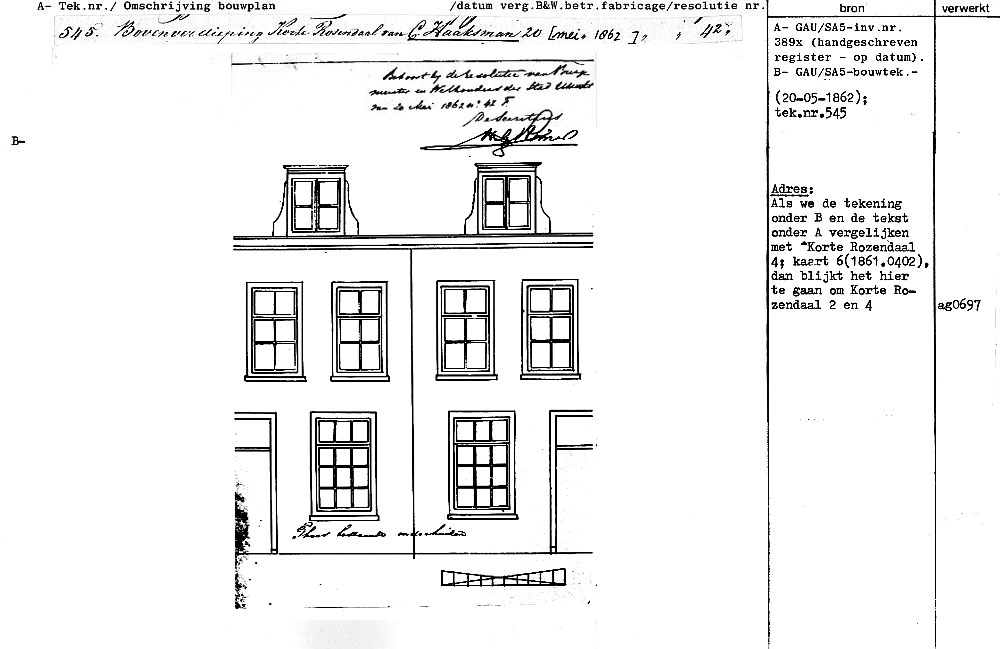 A- Tek.nr./ Omschrijving bouwplan /datum verg.B&W.betr.fabricage/resolutie nr. bron verwerkt
545. Bovenverdieping Korte Rosendaal van C. Haaksman 20 [mei. 1862 ], " " 42,
Behoort bij de Resolutie van Burge
meester en Wethouders der Stad Utrecht
van 20 Mei 1862 no. 42 F.
De Secretaris
B-
Thans bestaande onderhuizen
A- GAU/SA5-inv.nr.
389x (handgeschreven
register - op datum).
B- GAU/SA5-bouwtek.-
(20-05-1862);
tek.nr.545
Adres:
Als we de tekening
onder B en de tekst
onder A vergelijken
met "Korte Rozendaal
4; kaart 6(1861.0402),
dan blijkt het hier
te gaan om Korte Ro-
zendaal 2 en 4
ag0697